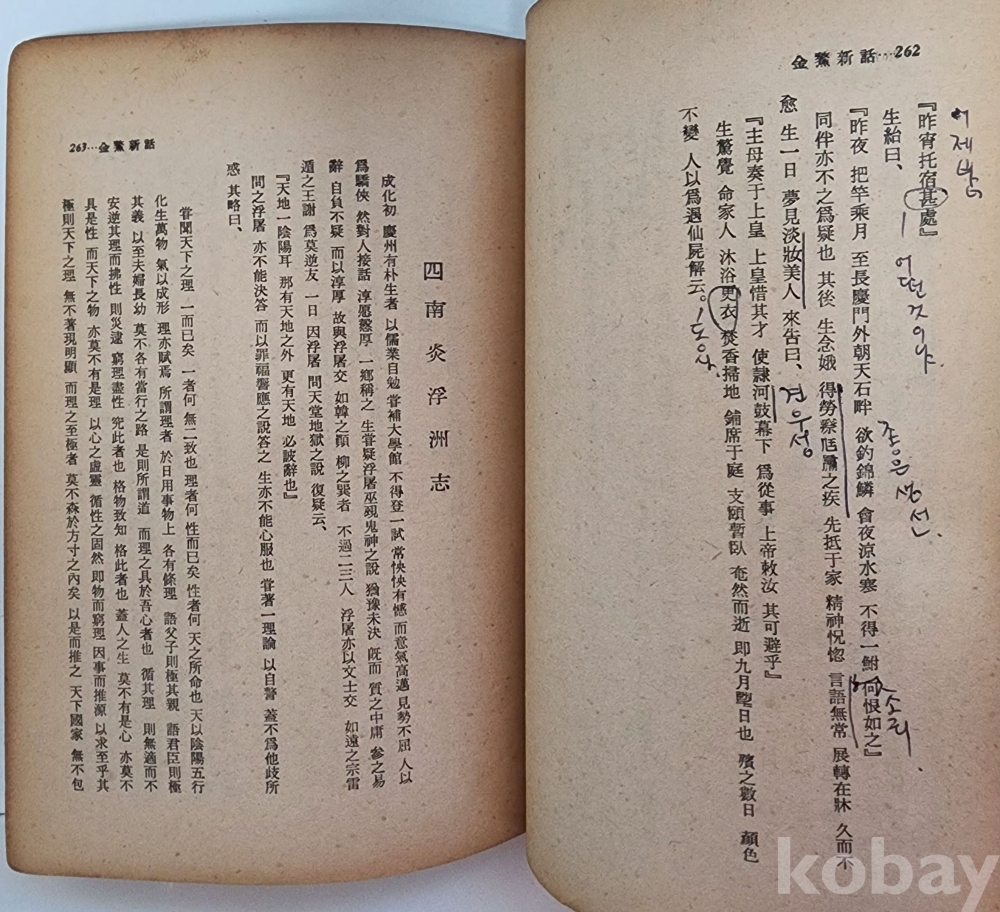 金鰲新話…262
『昨宵托宿甚處』
生紿曰、
『昨夜 把竿乘月 至長慶門外朝天石畔 欲釣錦鱗 會夜涼水寒 不得一鮒 何恨如之』
同伴亦不之爲疑也 其後 生念娥 得勞瘵尫羸之疾 先抵于家 精神怳惚 言語無常 展轉在牀 久而不
愈 生一日 夢見淡妝美人 來告曰、
『主母奏于上皇 上皇惜其才 使隷河鼓幕下 爲從事 上帝敕汝 其可避乎』
生驚覺 命家人 沐浴更衣 焚香掃地 鋪席于庭 支頤暫臥 奄然而逝 即九月望日也 殯之數日 顔色
不變 人以爲遇仙屍解云。
어제밤
어떤것이냐
좋은 생선
견우성
소리
263…金鰲新話
四 南炎浮洲志
成化初 慶州有朴生者 以儒業自勉 嘗補大學館 不得登一試 常怏怏有憾 而意氣高邁 見勢不屈 人以
爲驕俠 然對人接話 淳愿慤厚 一鄕稱之 生嘗疑浮屠巫覡鬼神之說 猶豫未決 旣而 質之中庸 參之易
辭 自負不疑 而以淳厚 故與浮屠交 如韓之顚 柳之巽者 不過二三人 浮屠亦以文士交 如遠之宗雷
遁之王謝 爲莫逆友 一日 因浮屠 問天堂地獄之說 復疑云、
『天地一陰陽耳 那有天地之外 更有天地 必詖辭也』
問之浮屠 亦不能決答 而以罪福響應之說答之 生亦不能心服也 嘗著一理論 以自警 蓋不爲他歧所
惑 其略曰、
嘗聞天下之理 一而已矣 一者何 無二致也 理者何 性而已矣 性者何 天之所命也 天以陰陽五行
化生萬物 氣以成形 理亦賦焉 所謂理者 於日用事物上 各有條理 語父子則極其親 語君臣則極
其義 以至夫婦長幼 莫不各有當行之路 是則所謂道 而理之具於吾心者也 循其理 則無適而不
安 逆其理而拂性 則災逮 窮理盡性 究此者也 格物致知 格此者也 蓋人之生 莫不有是心 亦莫不
具是性 而天下之物 亦莫不有是理 以心之虛靈 循性之固然 即物而窮理 因事而推源 以求至乎其
極 則天下之理 無不著現明顯 而理之至極者 莫不森於方寸之內矣 以是而推之 天下國家 無不包
kobay